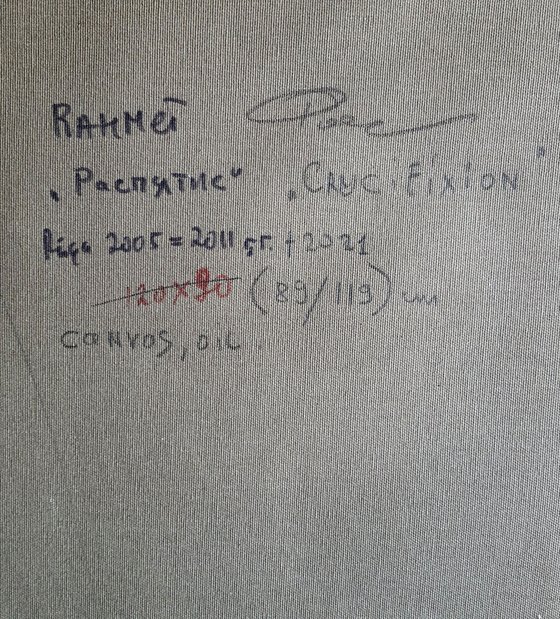 Rahmet
„Распятие“ „Crucifixion”
Riga 2005 = 2011 gг. + 2021
120x90 (89/119) cm
canvos, oil